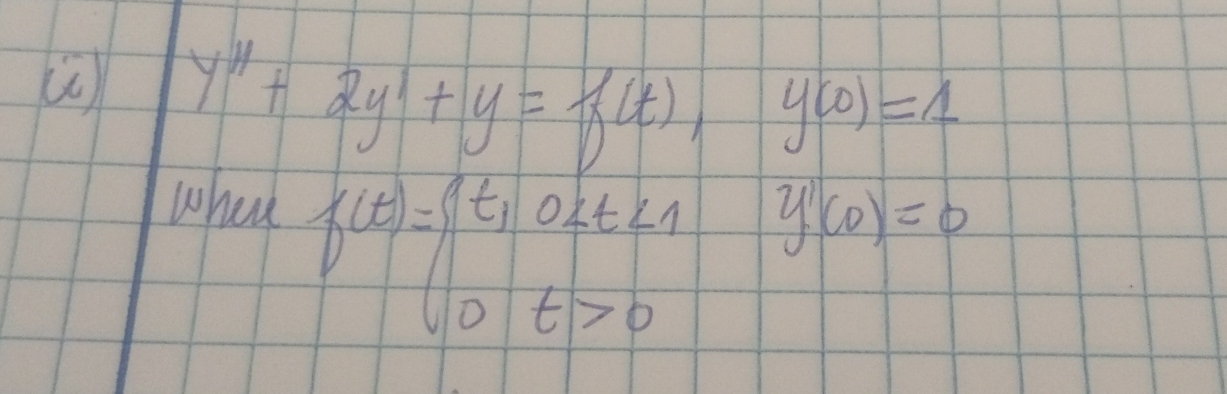 (ii) y'' + 2y' + y = f(t), y(0) = 1
where f(t) = { t, 0 < t < 1 y'(0) = 0
0 t > 0